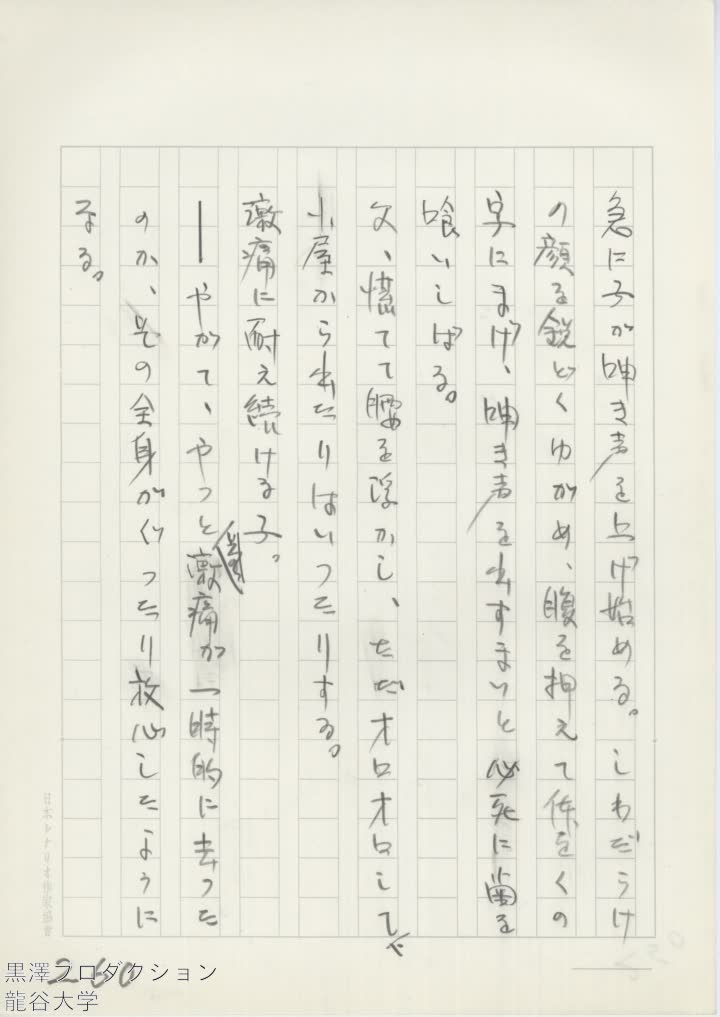 急に子が呻き声を上げ始める。しわだらけ
の顔を鋭どくゆがめ、腹を押えて体をくの
字にまげ、呻き声を出すまいと必死に歯を
喰いしばる。
父、慌てて腰を浮かし、ただオロオロして
小屋から出たりはいつたりする。
激痛に耐え続ける子。
――やがて、やつと激痛が一時的に去つた
のか、その全身がぐつたり放心したように
なる。
日本シナリオ作家協會
2-60
黒澤プロダクション
龍谷大学